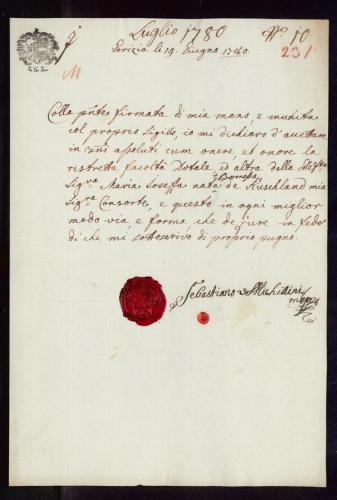 Luglio 1780
No. 10.
Gorizia li 19. Giugno 1780.
231
M
Colla pnte firmata di mia mano, e munita
col proprio Sigillo, io mi dichiaro d'accettare
in assoluti cum onere, et onore la
ristretta facoltà Dotale, ed altra della
Baronessa
Sigra Maria Josepha nata de Ruschland mia
Sigra Consorte, e questo in ogni miglior
modo via, e forma che de jure in fede
di che mi sottoscrivo di proprio pugno.
Sebastiano